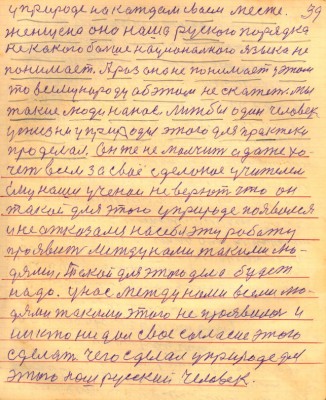 у природе на каждам своем месте. 39
женщина она наша руского порядка
не какого больше национального языка не
понимает. А раз она не понимает у этом
то всему народу об этом не скажет. мы
такие люди у нас. Лиж бы один человек
у жизни у природы этого для практики
проделал. Он же не молчит а даже хо-
чет всем за своё зделоное учителем
Ему наши ученаи не верют что он
такой для этого у природе появился
и не атказался на себя эту работу
проявит между нами такими лю-
дями, Такой для этого дела будет
надо. У нас между нами всеми лю-
дями такими этого не проявилося и
ни кто ни дал свое согласие этого
сделат. чего сделал у природе для
этого наш русский человек.